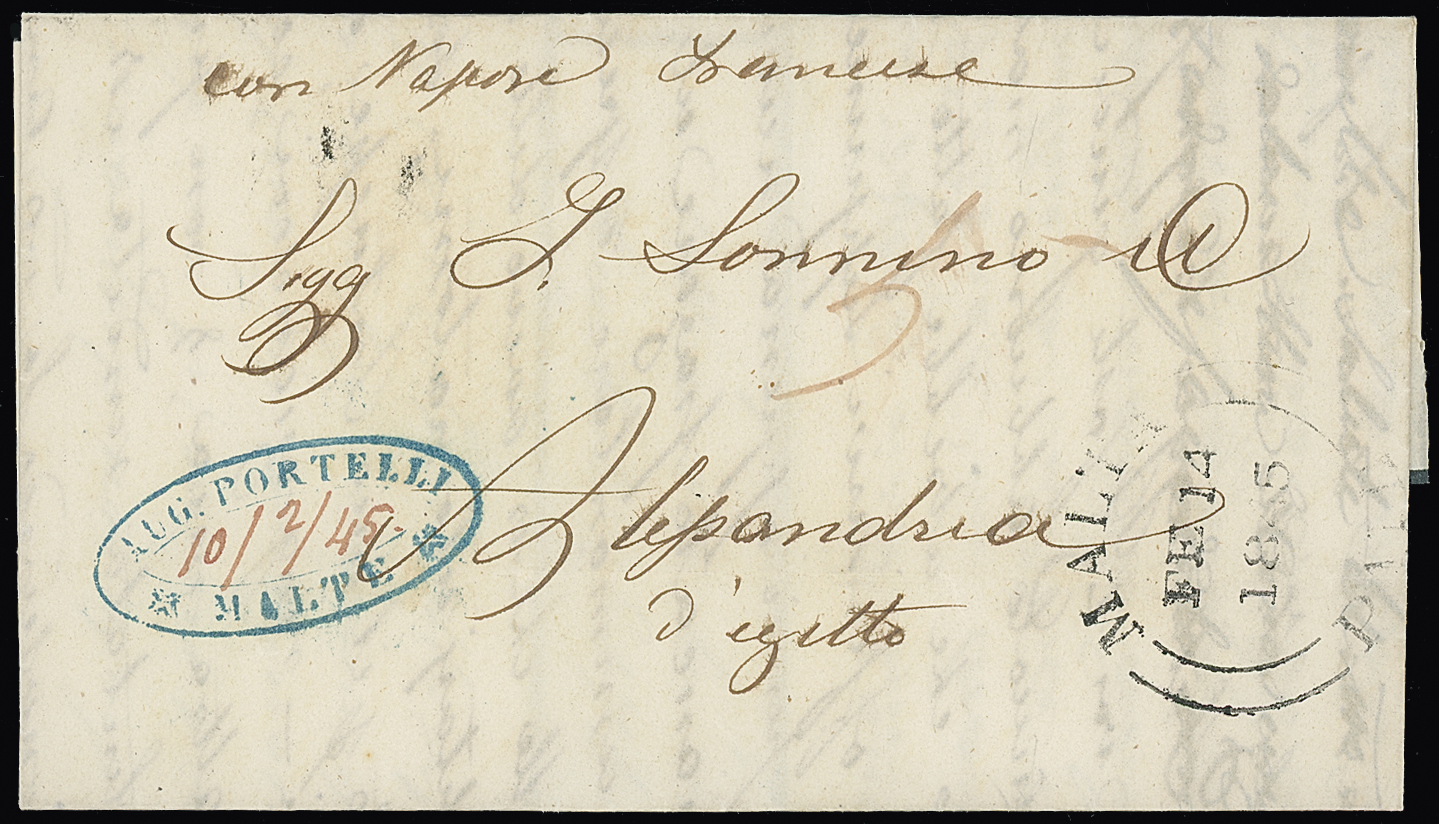 con Vapore Francese
Sigg I. Sonnino & C
Alessandria
d'egitto
AUG. PORTELLI
10/2/45
MALTE
MALTA
FE 14
1845
PAID